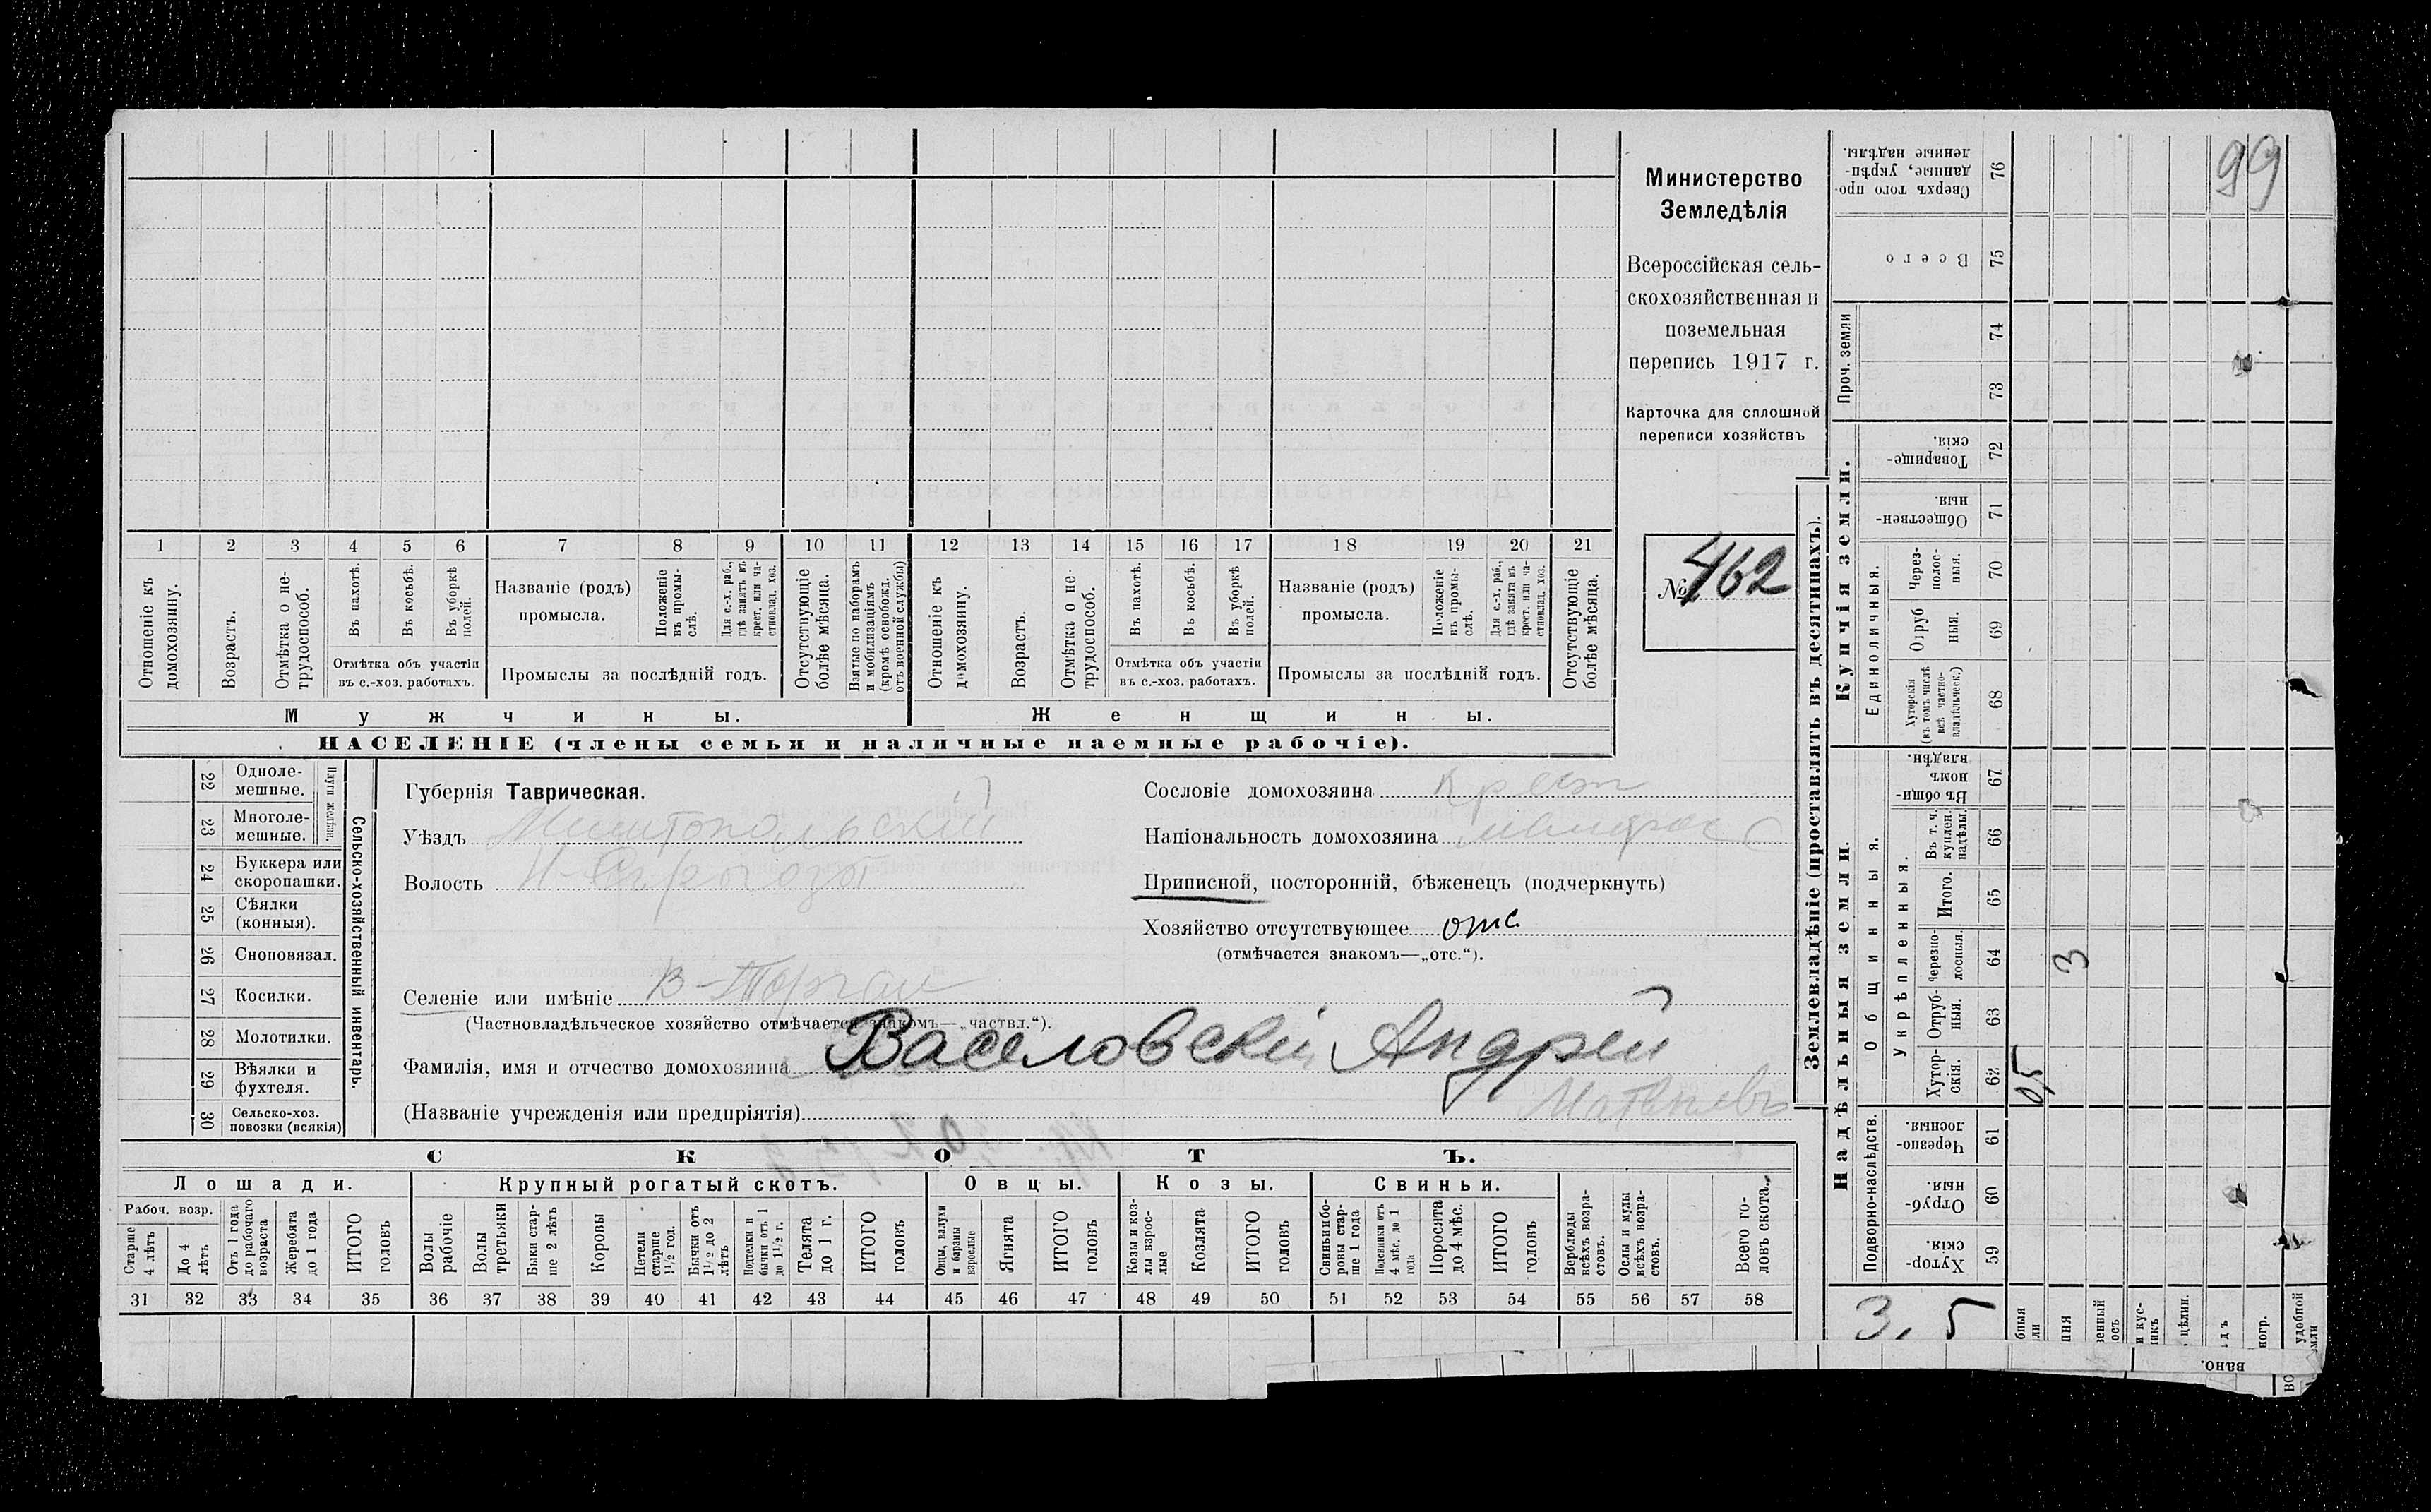 Министерство
Земледѣлія
Всероссійская сель-
скохозяйственная и
поземельная
перепись 1917 г.
Карточка для сплошной
переписи хозяйствъ
№ 462
1 2 3 4 5 6 7 8 9 10 11 12 13 14 15 16 17 18 19 20 21
Отношеніе къ домохозяину.
Возрастъ.
Отмѣтка о не-трудоспособ.
Въ пахотѣ.
Въ косьбѣ.
Въ уборкѣ полей.
Отмѣтка объ участіи
въ с.-хоз. работахъ.
Названіе (родъ)
промысла.
Положеніе въ промы-слѣ.
Для с.-х. раб., гдѣ занятъ въ крест. или ча-стновлад. хоз.
Промыслы за послѣдній годъ.
Отсутствующіе болѣе мѣсяца.
Взятые по наборамъ и мобилизаціямъ (кромѣ освобожд. отъ военной службы)
Отношеніе къ домохозяину.
Возрастъ.
Отмѣтка о не-трудоспособ.
Въ пахотѣ.
Въ косьбѣ.
Въ уборкѣ полей.
Отмѣтка объ участіи
въ с.-хоз. работахъ.
Названіе (родъ)
промысла.
Положеніе въ промы-слѣ.
Для с.-х. раб., гдѣ занята въ крест. или ча-стновлад. хоз.
Промыслы за послѣдній годъ.
Отсутствующіе болѣе мѣсяца.
Мужчины.
Женщины.
НАСЕЛЕНІЕ (члены семьи и наличные наемные рабочіе).
22 Одноле-мешные.
23 Многоле-мешные.
Плуги желѣзн.
24 Буккера или скоропашки.
25 Сѣялки (конныя).
26 Сноповязал.
27 Косилки.
28 Молотилки.
29 Вѣялки и фухтеля.
30 Сельско-хоз. повозки (всякія)
Сельско-хозяйственный инвентарь.
Губернія Таврическая.
Уѣздъ Мелитопольскій
Волость
Селеніе или имѣніе В-Торгаи
(Частновладѣльческое хозяйство отмѣчается знакомъ—„частвл.“).
Фамилія, имя и отчество домохозяина Васеловскій Андрей
Матвѣевъ
(Названіе учрежденія или предпріятія)
Сословіе домохозяина Крест
Національность домохозяина малорос
Приписной, посторонній, бѣженецъ (подчеркнуть)
Хозяйство отсутствующее отс
(отмѣчается знакомъ—„отс.“).
СКОТЪ.
Лошади.
Крупный рогатый скотъ.
Овцы.
Козы.
Свиньи.
Рабоч. возр.
Старше 4 лѣтъ
До 4 лѣтъ
Отъ 1 года до рабочаго возраста
Жеребята до 1 года
ИТОГО головъ
Волы рабочіе
Волы третьяки
Быки стар-ше 2 лѣтъ
Коровы
Нетели старше 1½ год.
Бычки отъ 1½ до 2 лѣтъ
Подтелки и бычки отъ 1 до 1½ г.
Телята до 1 г.
ИТОГО головъ
Овцы, валухи и бараны взрослые
Ягнята
ИТОГО головъ
Козы и коз-лы взрос-лые
Козлята
ИТОГО головъ
Свиньи и бо-ровы стар-ше 1 года
Подсвинки отъ 4 мѣс. до 1 года
Поросята до 4 мѣс.
ИТОГО головъ
Верблюды всѣхъ возра-стовъ.
Ослы и мулы всѣхъ возра-стовъ.
Всего го-ловъ скота.
31 32 33 34 35 36 37 38 39 40 41 42 43 44 45 46 47 48 49 50 51 52 53 54 55 56 57 58
Землевладѣніе (проставлять въ десятинахъ).
Купчія земли.
Надѣльныя земли.
Сверхъ того про-данные, укрѣп-ленные надѣлы. 76
99
Всего 75
Проч. земли
74
73
Товарище-скія. 72
Обществен-ныя. 71
Единоличныя.
Через-полос-ныя. 70
Отруб ныя. 69
Хуторскія (въ томъ числѣ всѣ частно-владѣльческ.) 68
Общинныя.
Въ общи-номъ владѣн. 67
Укрѣпленныя.
Въ т. ч. куплен. надѣлы. 66
Итого. 65
Черезпо-лосныя. 64 3
Отруб-ныя. 63
Хутор-скія. 62 0,5
Подворно-наслѣдств.
Черезпо-лосныя. 61
Отруб-ныя. 60
Хутор-скія. 59
3,5